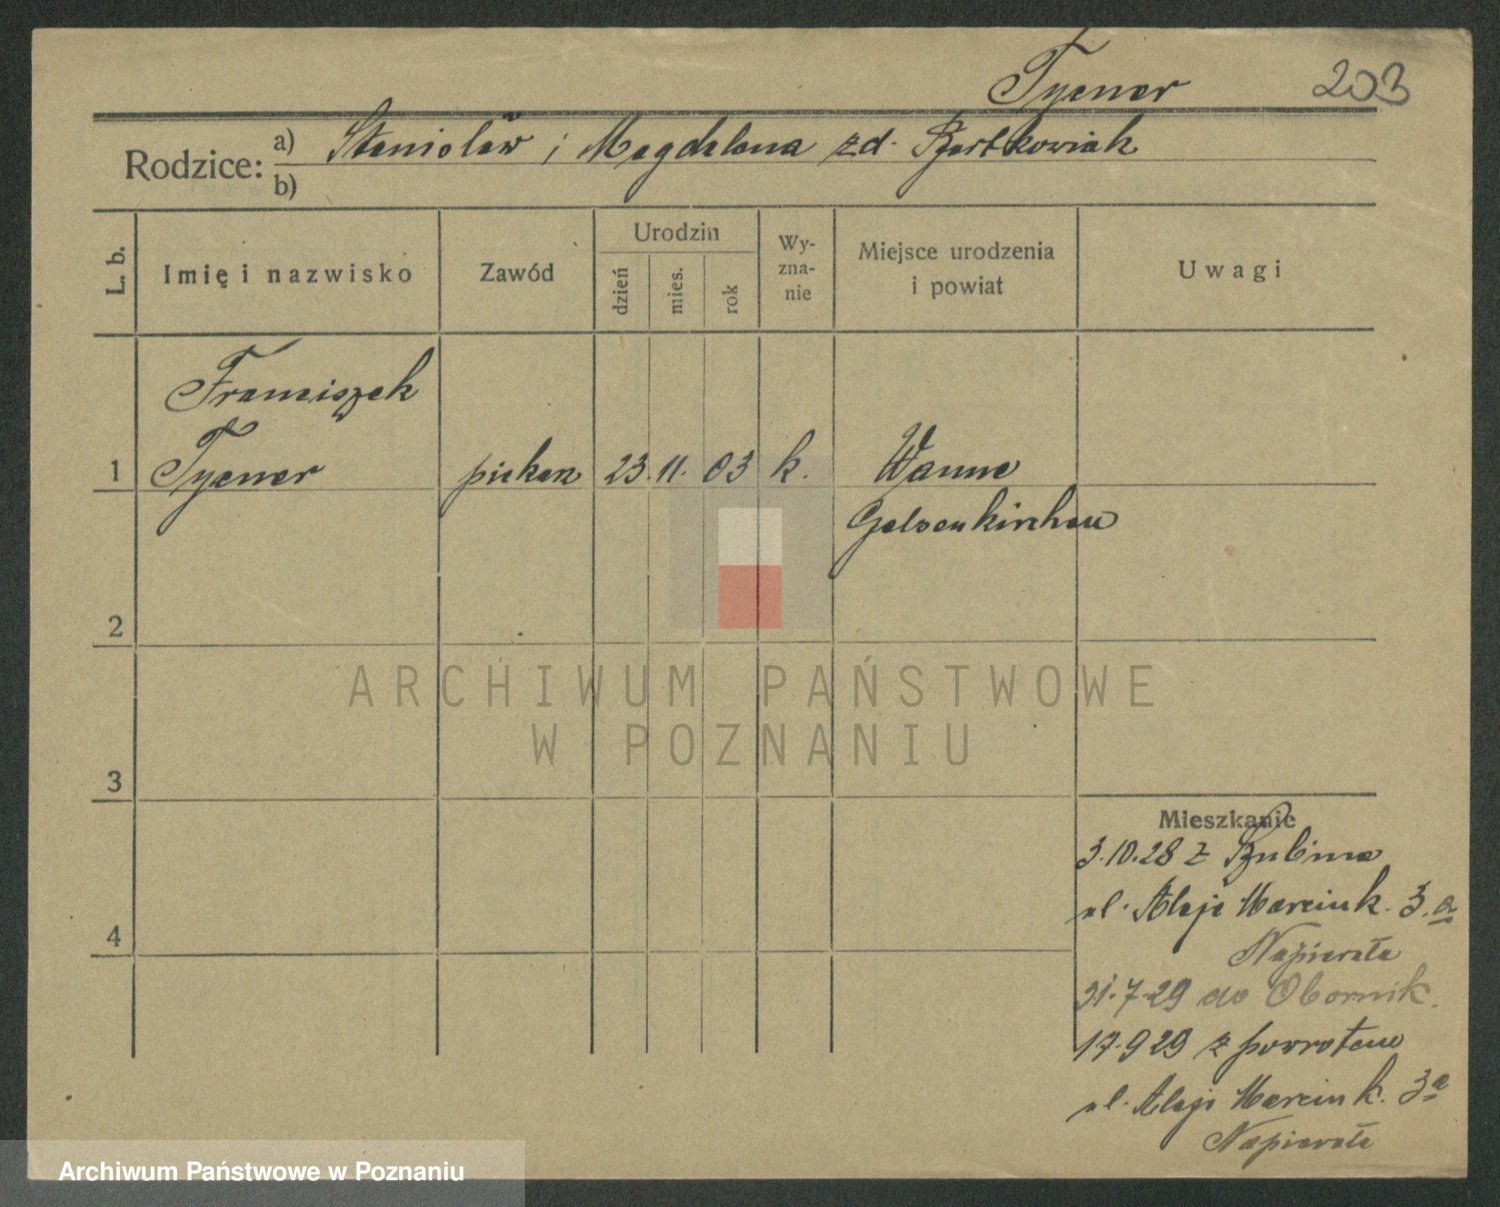 Tycner 203
Rodzice: a) Stanisław i Magdalena zd. Bartkowiak
b)
L. b.
Imię i nazwisko
Zawód
Urodzin
dzień
mies.
rok
Wy-
zna-
nie
Miejsce urodzenia
i powiat
Uwagi
Franciszek
1 Tycner piekarz 23. 11. 03 k. Wanne
Gelsenkirchen
2
ARCHIWUM PAŃSTWOWE
W POZNANIU
3
Mieszkanie
3.10.28 z
ul. Aleje Marcink. 3.a
4
Napierała
31.7.29 do Obornik.
17.9.29 z powrotem
ul. Aleje Marcink. 3a
Napierała
Archiwum Państwowe w Poznaniu